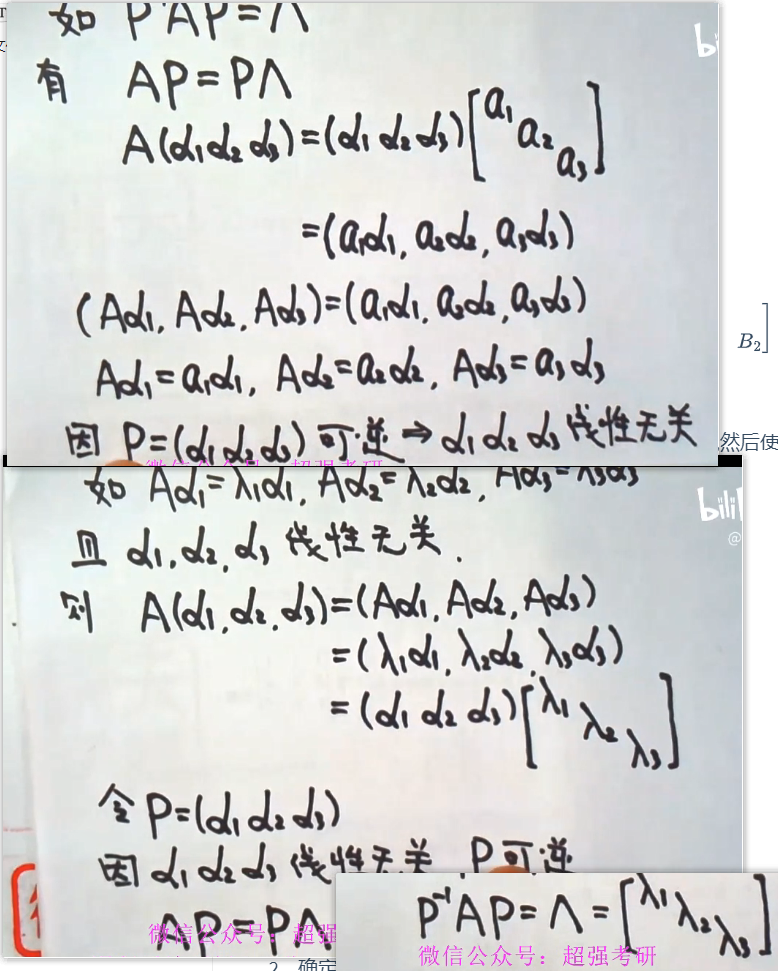 如 P⁻¹AP=Λ
有 AP=PΛ
A(α₁α₂α₃)=(α₁α₂α₃)[a₁ a₂ a₃]
=(a₁α₁, a₂α₂, a₃α₃)
(Aα₁, Aα₂, Aα₃)=(a₁α₁, a₂α₂, a₃α₃)
Aα₁=a₁α₁, Aα₂=a₂α₂, Aα₃=a₃α₃
B₂]
因 P=(α₁α₂α₃)可逆⇒α₁α₂α₃线性无关
然后使
如 Aα₁=λ₁α₁, Aα₂=λ₂α₂, Aα₃=λ₃α₃
且 α₁,α₂,α₃线性无关.
@
则 A(α₁,α₂,α₃)=(Aα₁,Aα₂,Aα₃)
=(λ₁α₁,λ₂α₂,λ₃α₃)
=(α₁α₂α₃)[λ₁ λ₂ λ₃]
令P=(α₁α₂α₃)
因α₁α₂α₃线性无关 P可逆
AP=PΛ
P⁻¹AP=Λ=[λ₁ λ₂ λ₃]
微信公众号：超强
微信公众号：超强考研
2. 确定